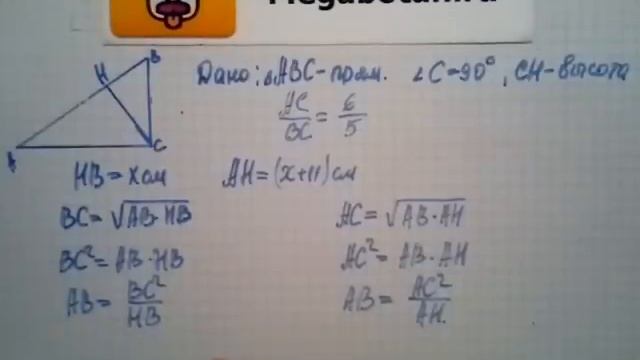 Megabotan.ru
B
H
A
C
Дано: △ABC-прям. ∠C=90°, CH-высота
AC/BC = 6/5
HB = x см AH = (x+11) см
BC = √AB·HB AC = √AB·AH
BC² = AB·HB AC² = AB·AH
AB = BC²/HB AB = AC²/AH.